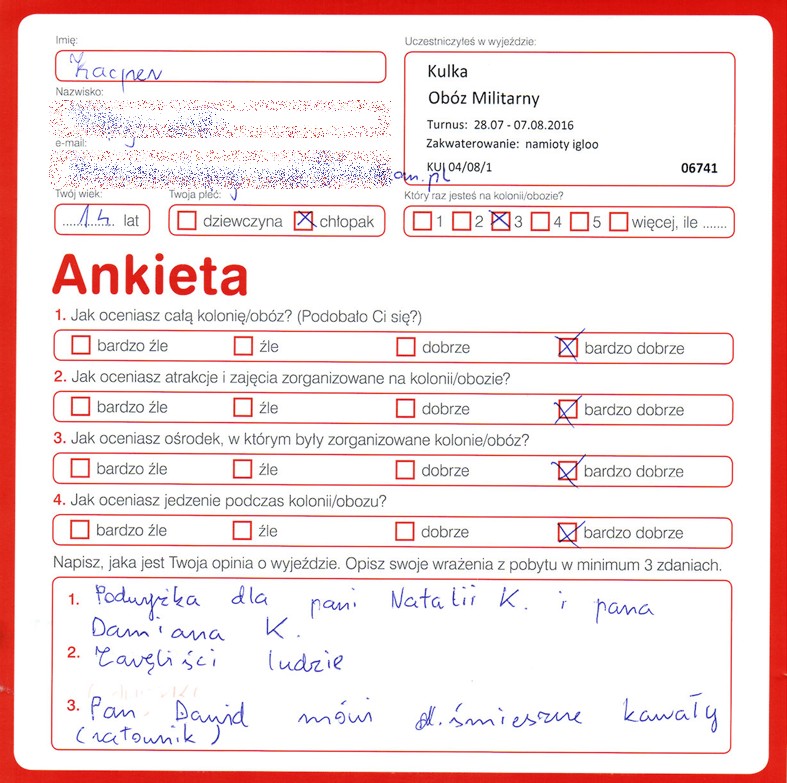 Imię:
Kacper
Uczestniczyłeś w wyjeździe:
Kulka
Obóz Militarny
Turnus: 28.07 - 07.08.2016
Zakwaterowanie: namioty igloo
KUJ 04/08/1 06741
Nazwisko:
e-mail:
om.pl
Twój wiek: Twoja płeć: Który raz jesteś na kolonii/obozie?
14 lat dziewczyna chłopak 1 2 3 4 5 więcej, ile .......
Ankieta
1. Jak oceniasz całą kolonię/obóz? (Podobało Ci się?)
bardzo źle źle dobrze bardzo dobrze
2. Jak oceniasz atrakcje i zajęcia zorganizowane na kolonii/obozie?
bardzo źle źle dobrze bardzo dobrze
3. Jak oceniasz ośrodek, w którym były zorganizowane kolonie/obóz?
bardzo źle źle dobrze bardzo dobrze
4. Jak oceniasz jedzenie podczas kolonii/obozu?
bardzo źle źle dobrze bardzo dobrze
Napisz, jaka jest Twoja opinia o wyjeździe. Opisz swoje wrażenia z pobytu w minimum 3 zdaniach.
1. Podwyżka dla pani Natalii K. i pana
Damiana K.
2. ludzie
3. Pan Dawid mówi śmieszne kawały
(ratownik)